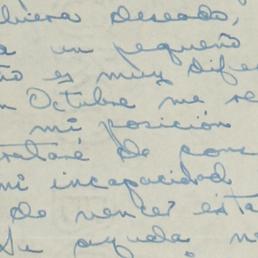 hubiera deseado,
a un pequeño
ño es muy dife
n Octubre me re
mi posición
trataré de pone
mi incapacidad
de vencer esta
Su ayuda n